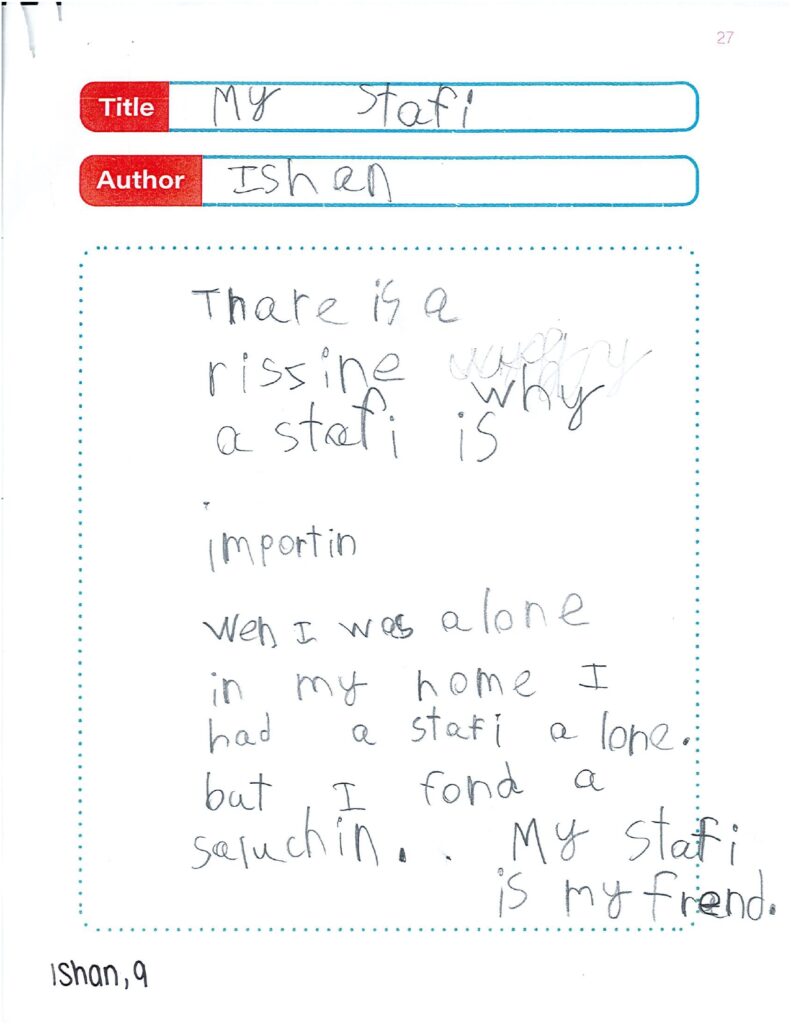 27
Title My Stafi
Author Ishan
Thare is a
rissine why
a stafi is
importin
Weh I was alone
in my home I
had a stafi a lone.
but I fond a
saluchin.. My stafi
is my frend.
Ishan, 9